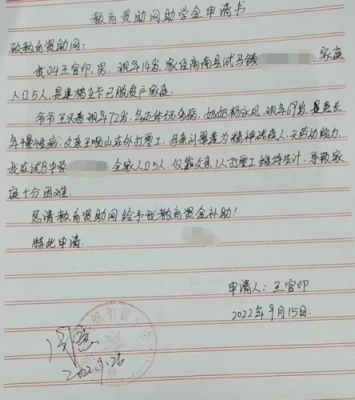 教育资助网助学金申请书
致教育资助网:
我叫王官印,男,现年14岁,家住商南县试马镇 家庭
人口5人,是建档立卡已脱贫户家庭。
爷爷王 现年72岁,年迈体弱多病,奶奶杨 风,现年69岁,是患长
年慢性病,父亲王 山在外打零工,母亲刘 为精神残疾人,无劳动能力,
我在试马中学 全家人口5人,仅靠父亲1人打零工维持生计,导致家
庭十分困难。
恳请教育资助网给予我教育资金补助!
特此申请
申请人:王官印
2022年9月15日.
2022.9.26